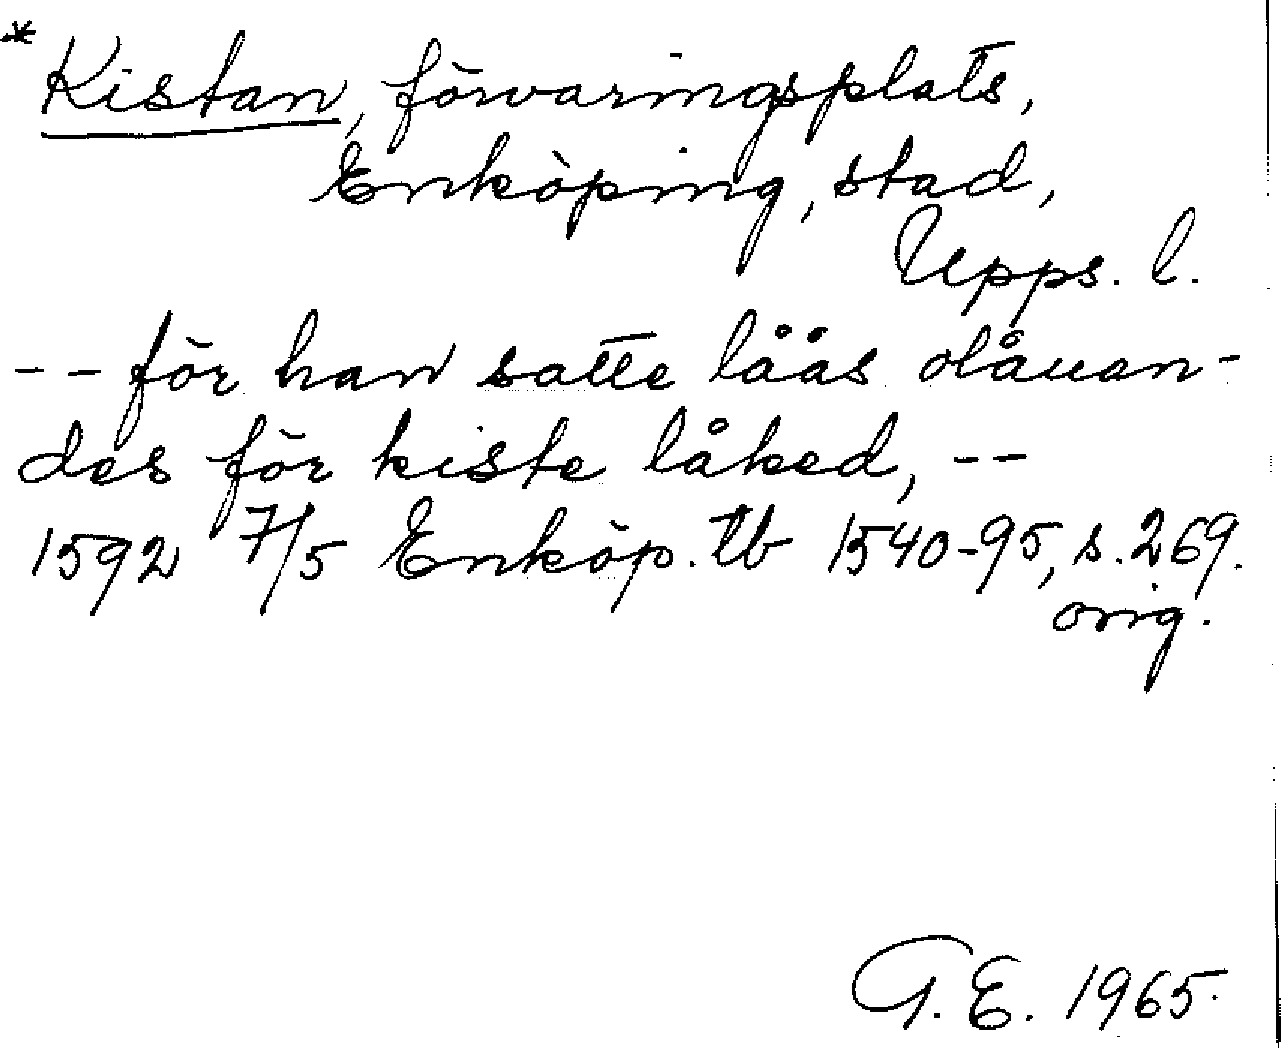 * Kistan, förvaringsplats,
Enköping, stad,
Upps. l.
-- för han satte låås olåuan-
des för kiste låked, --
1592 7/5 Enköp. tb 1540-95, s. 269.
orig.
G. E. 1965.